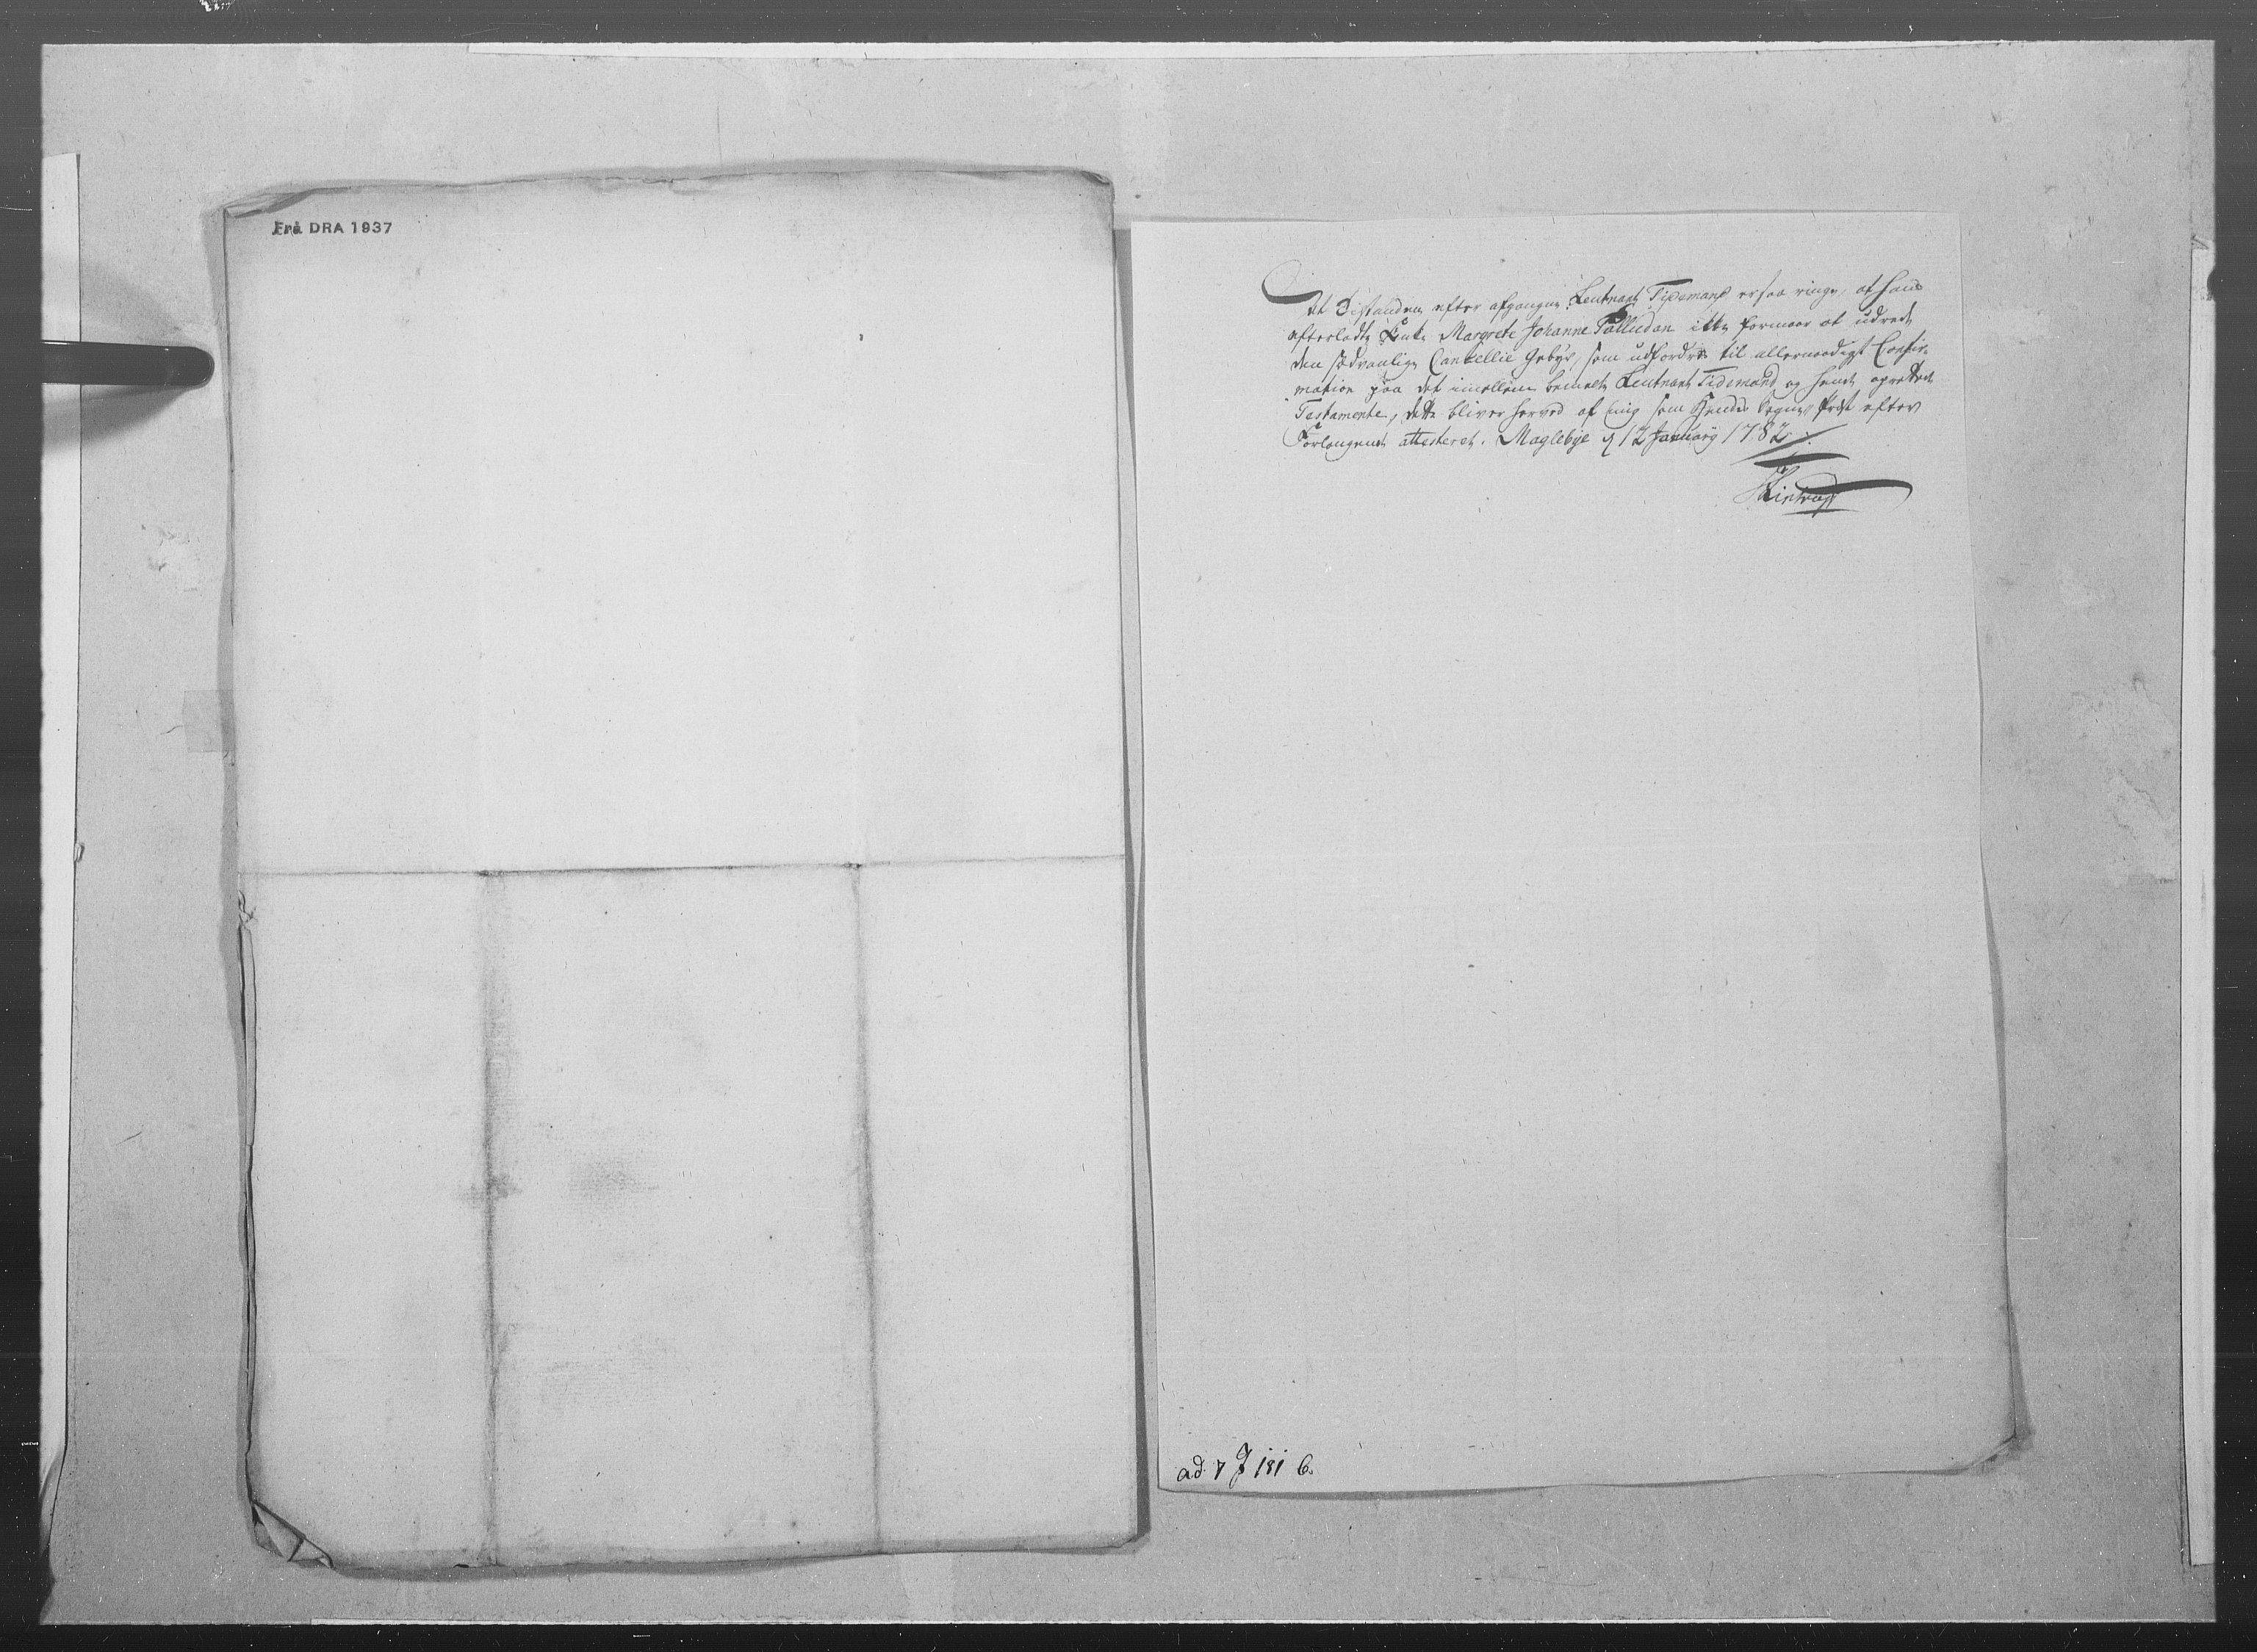 Frå DRA 1937
At Tilstanden efter afgangne Leutnant Tidemand er saa ringe, at hans
efterladte Enke Margrete Johanne Palludan ikke formaar at udrede
den sædvanlige Cancellie Gebyr, som udfordres til allernaadigst Confir-
mation paa det imellem bemelte Leutnant Tidemand og hende oprettede
Testamente, dette bliver herved af mig som Hendes Sogne Præst efter
Forlangende attesteret. Maglebye d 12 January 1782.
ad 7 J 181 6.